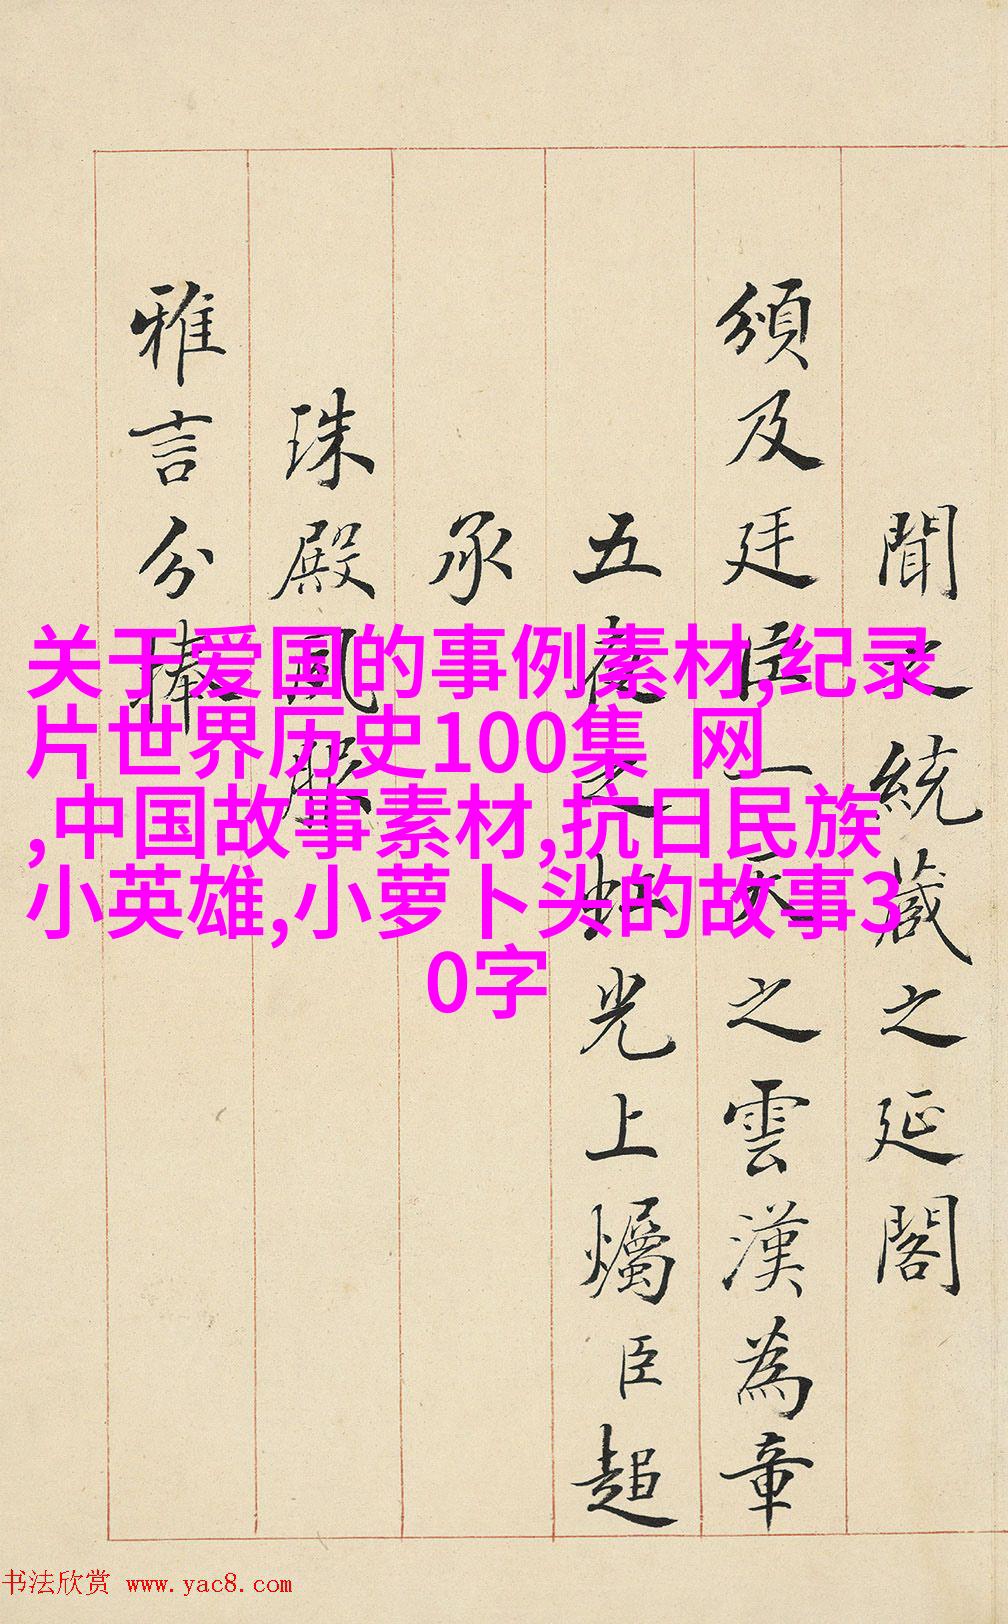 聞之統葴之延閣
頒及廷臣一天之雲漢為章
五夜之虹光上爥臣超
承
珠殿風
雅言分捧
关于爱国的事例素材,纪录
片世界历史100集 网
,中国故事素材,抗日民族
小英雄,小萝卜头的故事3
0字
书法欣赏 www.yac8.com